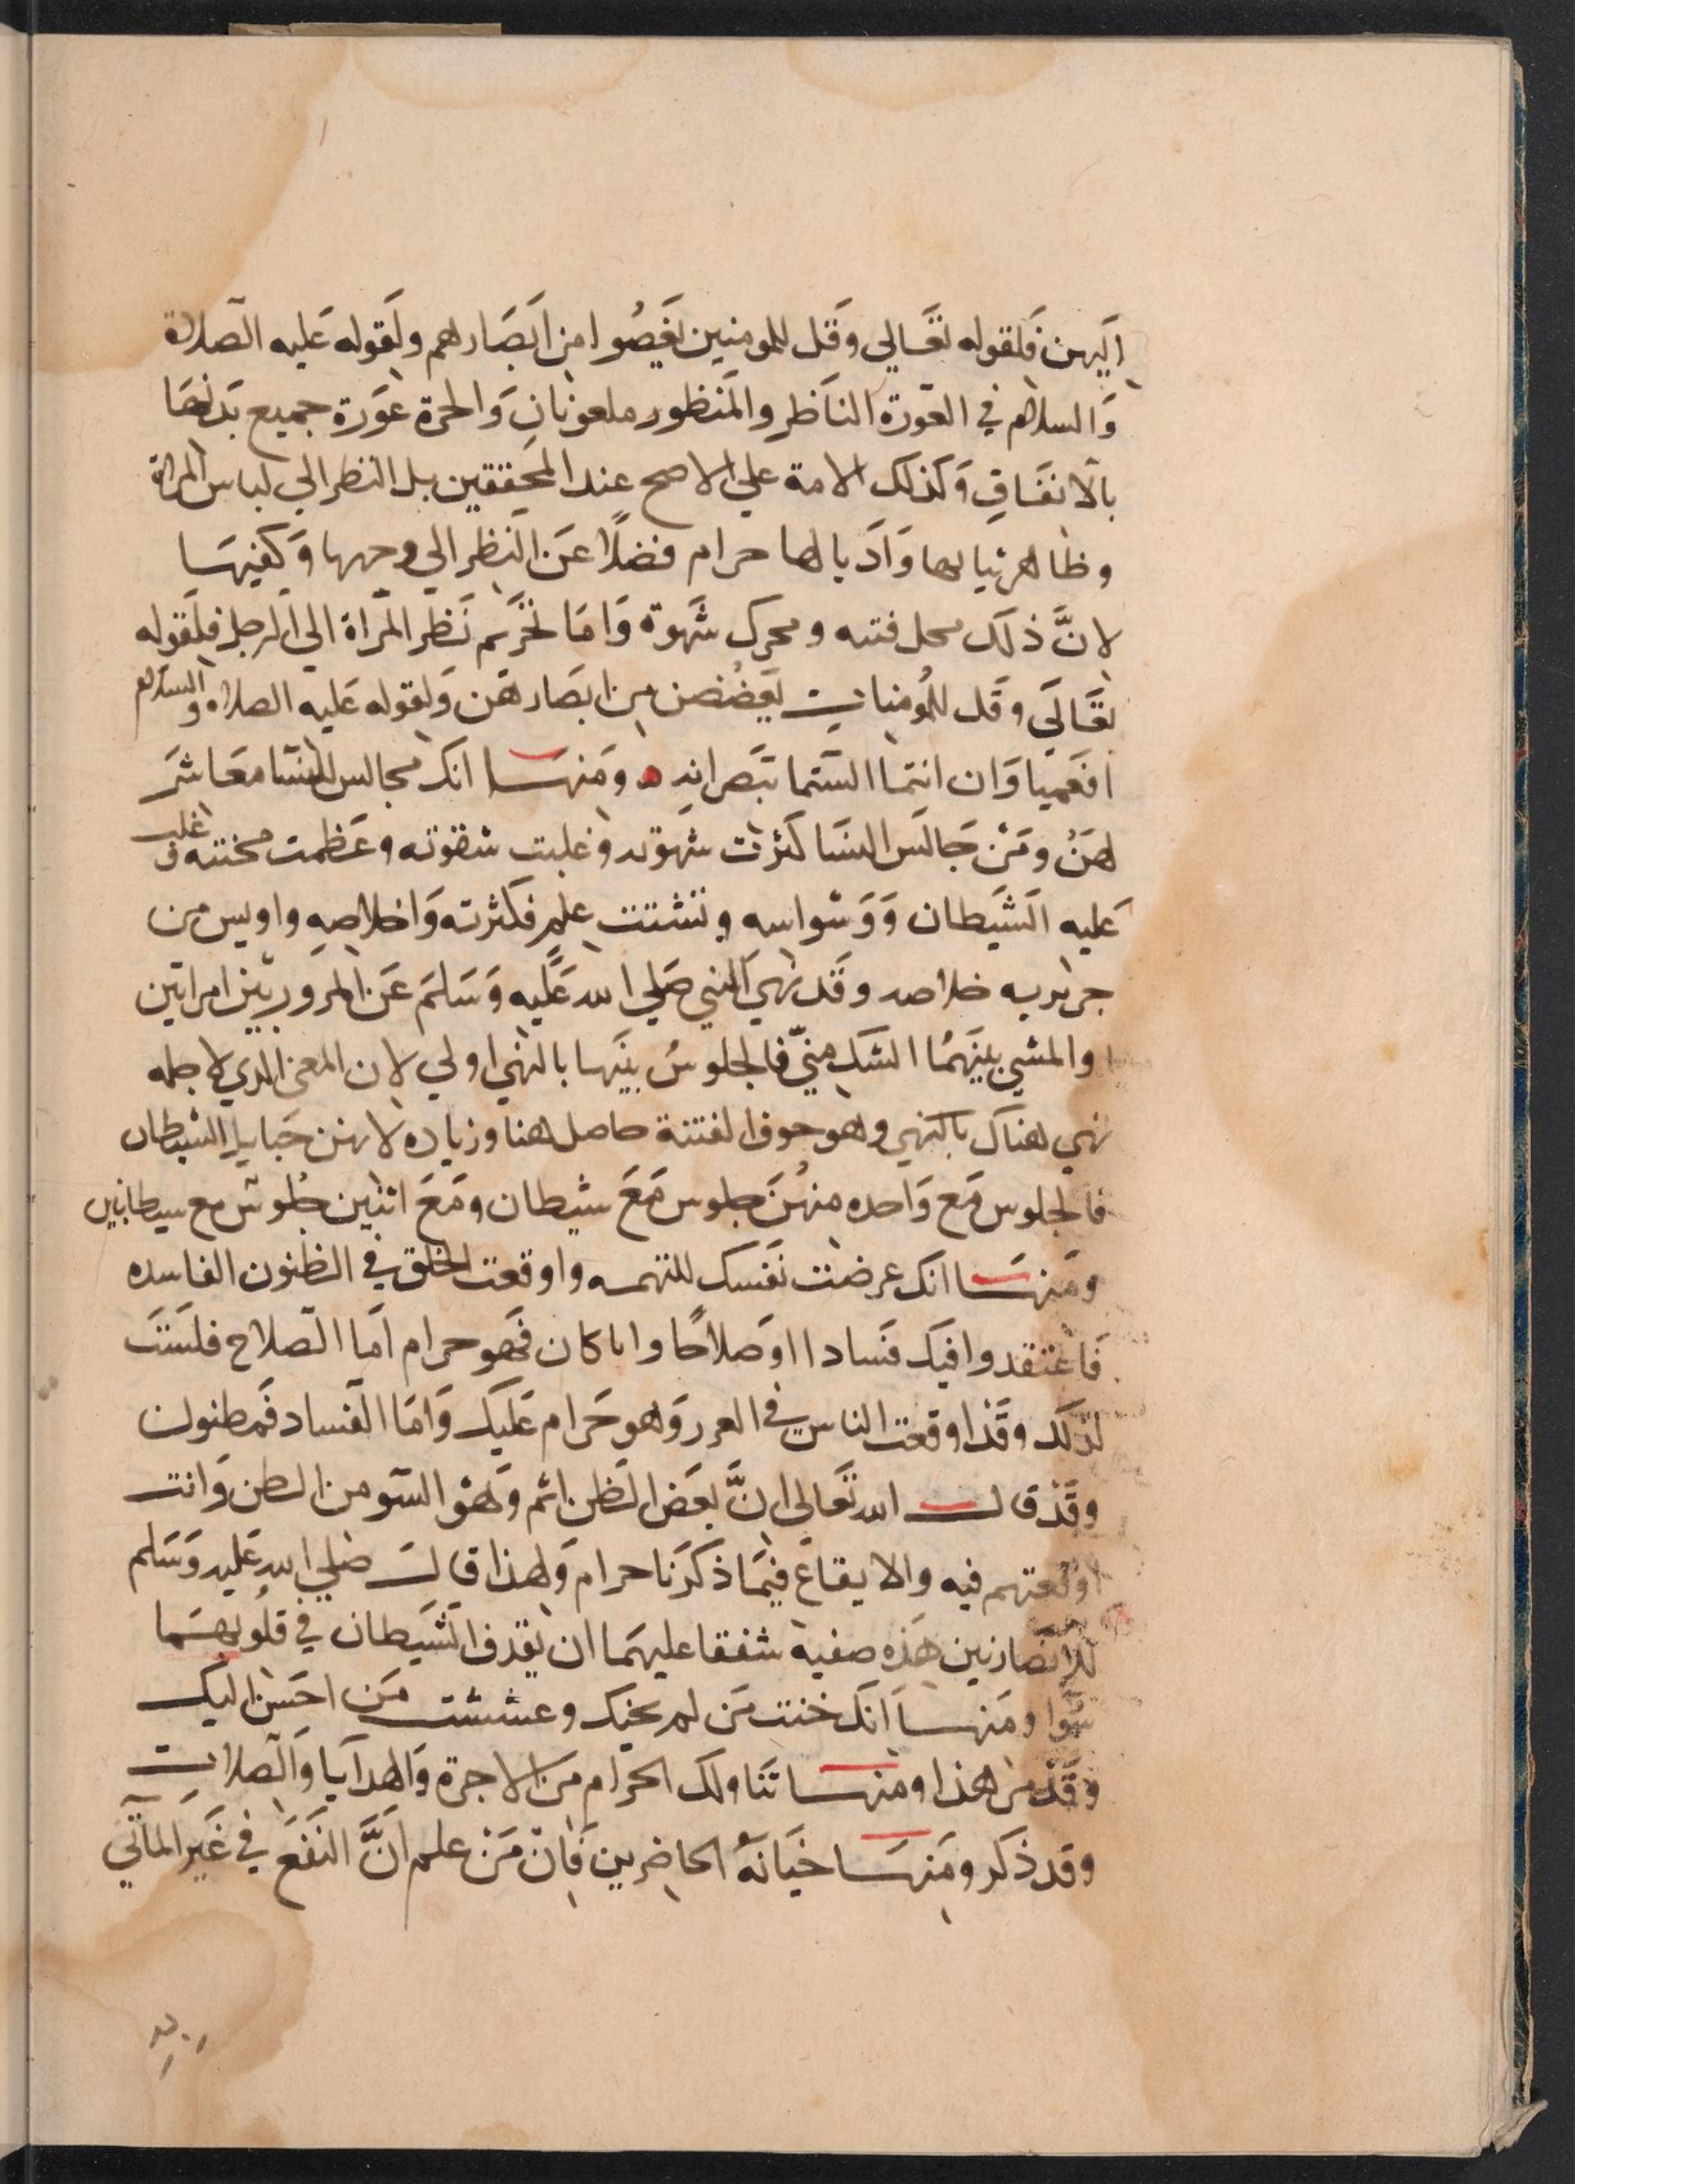 اليهن فلقوله تعالي وقل للمومنين يغضوا من ابصارهم ولقوله عليه الصلاة
والسلام في العورة الناظر والمنظور ملعونان والحرة عورة جميع بدنها
بالاتفاق وكذلك الامة علي الاصح عند المحققين بل النظر الي لباس المراة
وظاهر ثيابها واذيالها حرام فضلا عن النظر الي وجهها وكفيها
لان ذلك محل فتنه ومحرك شهوة واما تحريم نظر المراة الي الرجل فلقوله
تعالي وقل للمومنات يغضضن من ابصارهن ولقوله عليه الصلاه والسلام
افعميا وان انتما الستما تبصرانه ومنها انك مجالس للنسا معاشر
لهن ومن جالس النسا كثرت شهوته وغلبت شقوته وعظمت محنته وغلب
عليه الشيطان ووسواسه وتشتت علم فكثرته واخلاصه واويس من
خلاصه وقد نهي النبي صلي الله عليه وسلم عن المرور بين امراتين
والمشي بينهما الشك مني فالجلوس بينهما بالنهي اولي لان المعني الذي لاجله
نهي هناك بالنهي وهو خوف الفتنة حاصل هنا وزياده لانهن حبايل الشيطان
فالجلوس مع واحده منهن جلوس مع شيطان ومع اثنين جلوس مع شيطانين
ومنها انك عرضت نفسك للتهمه واوقعت الخلق في الظنون الفاسده
فاعتقدوا فيك فسادا او صلاحا وايا كان فهو حرام اما الصلاح فلست
لذلك وقد اوقعت الناس في الغرر وهو حرام عليك واما الفساد فمظنون
وقد قال الله تعالي ان بعض الظن اثم وهو السو من الظن وانت
اوقعتهم فيه والايقاع فيما ذكرنا حرام ولهذا قال صلي الله عليه وسلم
للانصاريين هذه صفيه شفقا عليهما ان يقذف الشيطان في قلوبهما
سوا ومنها انك خنت من لم يخنك وغششت من احسن اليك
وقد مر هذا ومنها تناولك الحرام من الاجرة والهدايا والصلات
وقد ذكر ومنها خيانة الحاضرين فان من علم ان النفع في غير الماتي